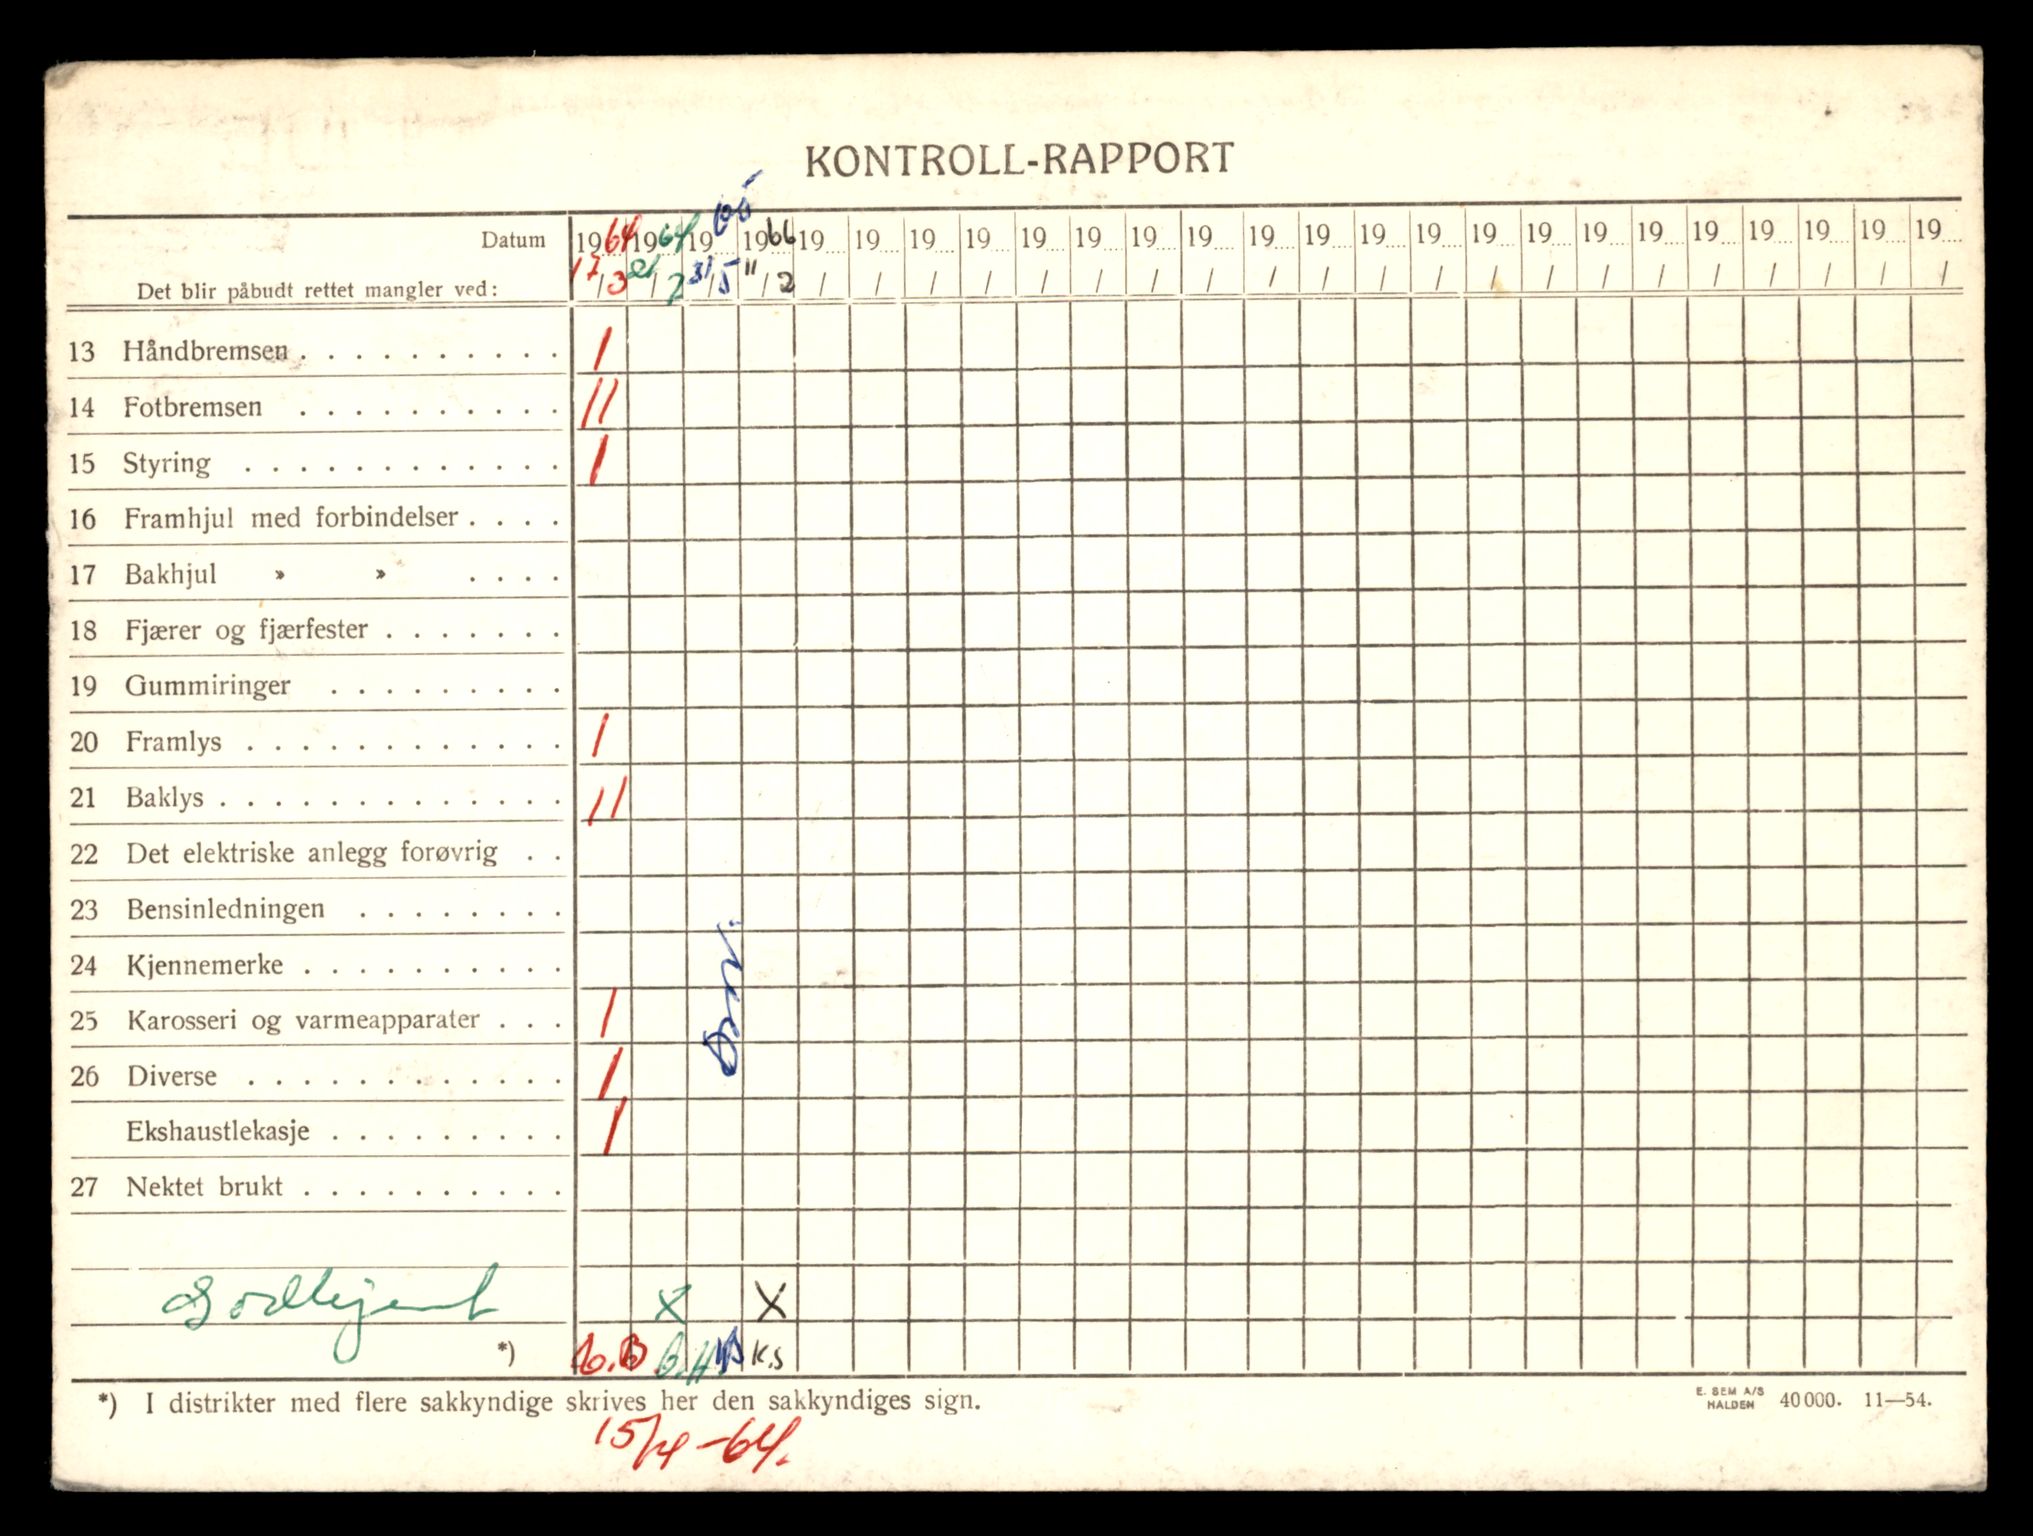 KONTROLL-RAPPORT
Datum 1964 1964 1965 1966 19 19 19 19 19 19 19 19 19 19 19 19 19 19 19 19 19 19 19 19 19
Det blir påbudt rettet mangler ved: 17/3 21/7 31/5 11/2 / / / / / / / / / / / / / / / / / / / / /
13 Håndbremsen . . . . . . . . . . /
14 Fotbremsen . . . . . . . . . . //
15 Styring . . . . . . . . . . . . /
16 Framhjul med forbindelser . . . .
17 Bakhjul » » . . . .
18 Fjærer og fjærfester . . . . . . .
19 Gummiringer . . . . . . . . .
20 Framlys . . . . . . . . . . . . /
21 Baklys . . . . . . . . . . . . . //
22 Det elektriske anlegg forøvrig . .
23 Bensinledningen . . . . . . . .
24 Kjennemerke . . . . . . . . . .
25 Karosseri og varmeapparater . . . /
26 Diverse . . . . . . . . . . . . /
Ekshaustlekasje . . . . . . . . . /
27 Nektet brukt . . . . . . . . . .
Godkjent X X
*) K.S
*) I distrikter med flere sakkyndige skrives her den sakkyndiges sign.
E. SEM A/S HALDEN 40 000. 11—54.
15/4-64.